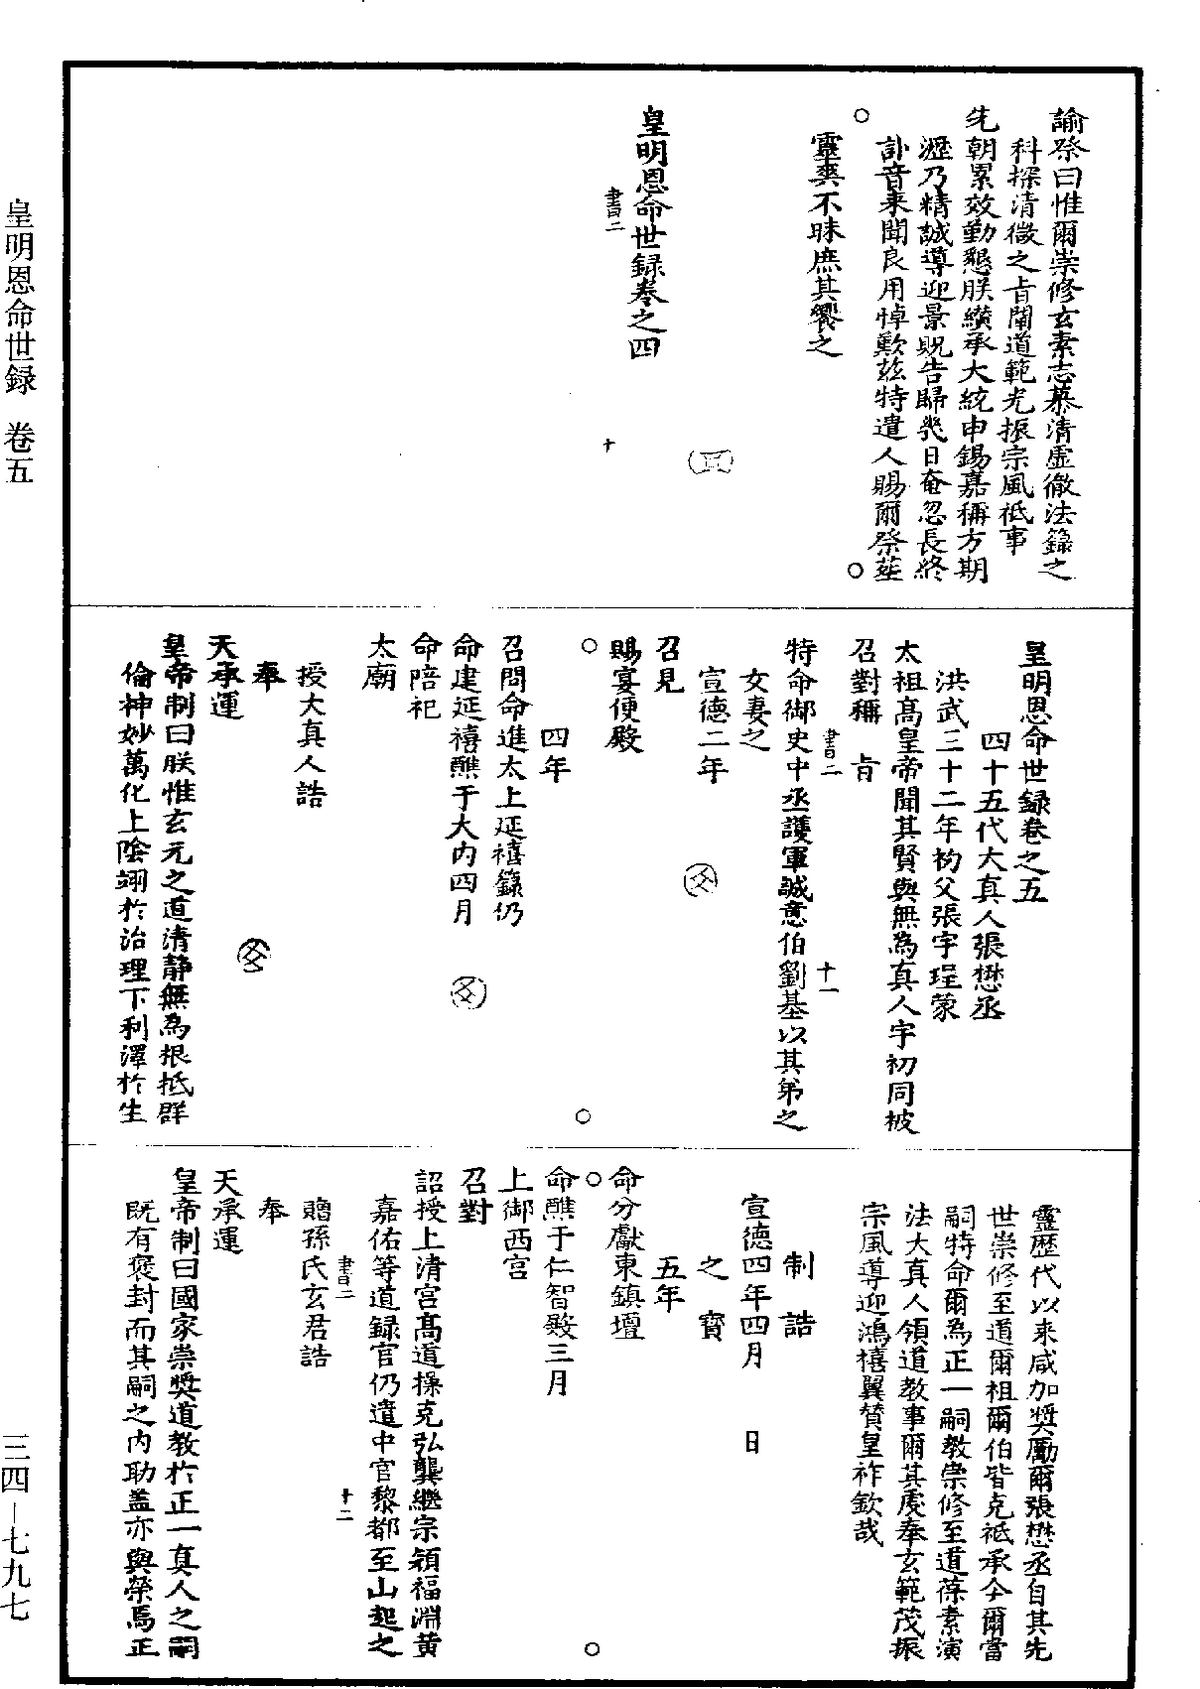 諭祭曰惟爾崇修玄素志慕清虛徹法籙之
科探清微之旨闡道範光振宗風祗事
先朝累效勤懇朕纘承大統申錫嘉稱方期
瀝乃精誠導迎景貺告歸幾日奄忽長終
訃音来聞良用悼歎玆特遣人賜爾祭莚
靈爽不昧庶其饗之
皇明恩命世録卷之四
書二
十
皇明恩命世録卷之五
四十五代大真人張懋丞
洪武三十二年初父張宇珵蒙
太祖髙皇帝聞其賢與無為真人宇初同被
召對稱旨
書二
十一
特命御史中丞護軍誠意伯劉基以其弟之
女妻之
宣德二年
召見
賜宴便殿
四年
召問命進太上延禧籙仍
命建延禧醮于大内四月
命陪祀
太廟
授大真人誥
奉
天承運
皇帝制曰朕惟玄元之道清静無為根抵群
倫神妙萬化上陰翊扵治理下利澤扵生
靈歴代以来咸加奬勵爾張懋丞自其先
世崇修至道爾祖爾伯皆克祗承今爾當
嗣特命爾為正一嗣教崇修至道葆素演
法大真人領道教事爾其虔奉玄範茂振
宗風導迎鴻禧翼賛皇祚欽哉
制誥
宣德四年四月　日
之寳
五年
命分獻東鎮壇
命醮于仁智殿三月
上御西宫
召對
詔授上清宫髙道操克弘龔繼宗領福淵黄
嘉佑等道録官仍遣中官黎都至山起之
書二
十二
贈孫氏玄君誥
奉
天承運
皇帝制曰國家崇奬道教扵正一真人之嗣
既有褒封而其嗣之内助盖亦與榮焉正
皇明恩命世録　卷五
三四—七九七